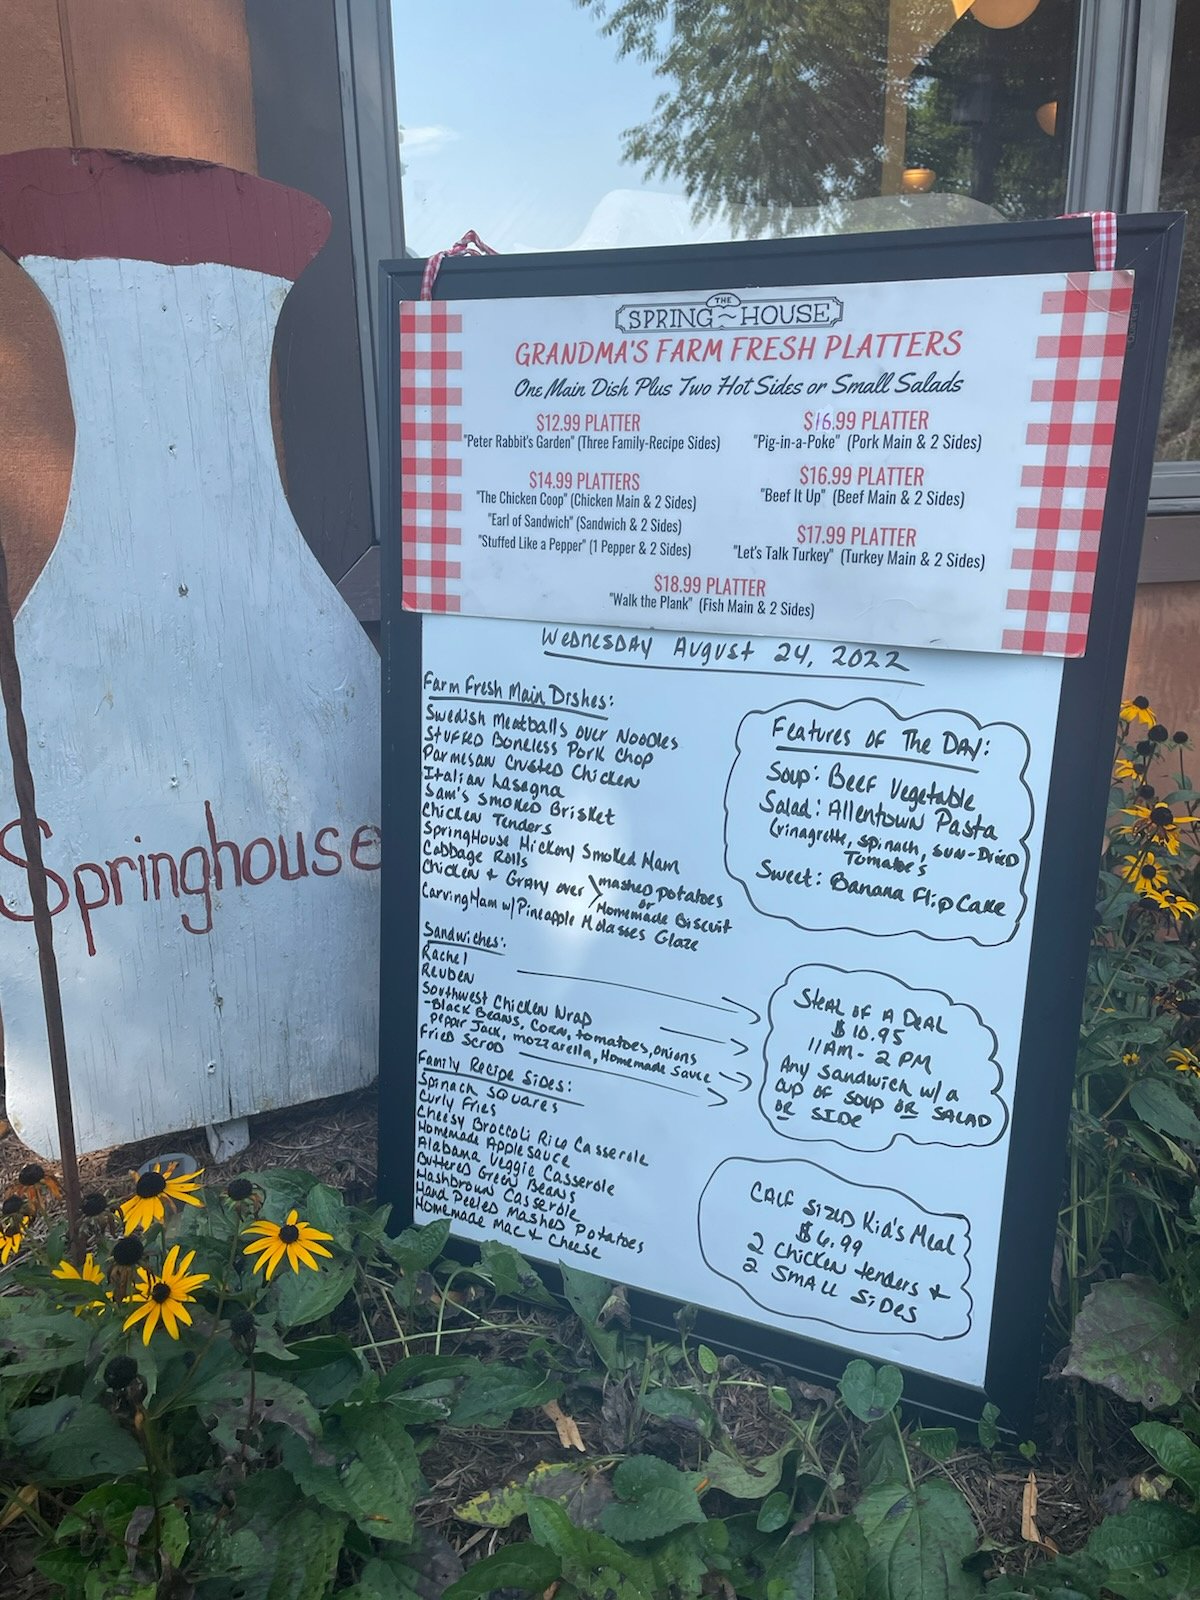 THE
SPRING HOUSE
GRANDMA'S FARM FRESH PLATTERS
One Main Dish Plus Two Hot Sides or Small Salads
$12.99 PLATTER
"Peter Rabbit's Garden" (Three Family-Recipe Sides)
$14.99 PLATTERS
"The Chicken Coop" (Chicken Main & 2 Sides)
"Earl of Sandwich" (Sandwich & 2 Sides)
"Stuffed Like a Pepper" (1 Pepper & 2 Sides)
$16.99 PLATTER
"Pig-in-a-Poke" (Pork Main & 2 Sides)
$16.99 PLATTER
"Beef It Up" (Beef Main & 2 Sides)
$17.99 PLATTER
"Let's Talk Turkey" (Turkey Main & 2 Sides)
$18.99 PLATTER
"Walk the Plank" (Fish Main & 2 Sides)
Wednesday August 24, 2022
Farm Fresh Main Dishes:
Swedish Meatballs over Noodles
Stuffed Boneless Pork Chop
Parmesan Crusted Chicken
Italian Lasagna
Sam's Smoked Brisket
Chicken Tenders
SpringHouse Hickory Smoked Ham
Cabbage Rolls
Chicken & Gravy over mashed potatoes
or
Homemade Biscuit
Carving Ham w/ Pineapple Molasses Glaze
Sandwiches:
Rachel
Reuben
Southwest Chicken Wrap
-Black Beans, Corn, tomatoes, onions
pepper Jack, mozzarella, Homemade Sauce
Fried Scrod
Family Recipe Sides:
Spinach Squares
Curly Fries
Cheesy Broccoli Rice Casserole
Homemade Applesauce
Alabama Veggie Casserole
Buttered Green Beans
Hashbrown Casserole
Hand Peeled Mashed Potatoes
Homemade Mac & Cheese
Features of The Day:
Soup: Beef Vegetable
Salad: Allentown Pasta
(vinagrette, spinach, sun-Dried
Tomatoes
Sweet: Banana Flip Cake
Steal of a Deal
$10.95
11AM - 2 PM
Any Sandwich w/ a
cup of soup or salad
or side
Calf Sized Kid's Meal
$6.99
2 chicken tenders &
2 small sides
Springhouse